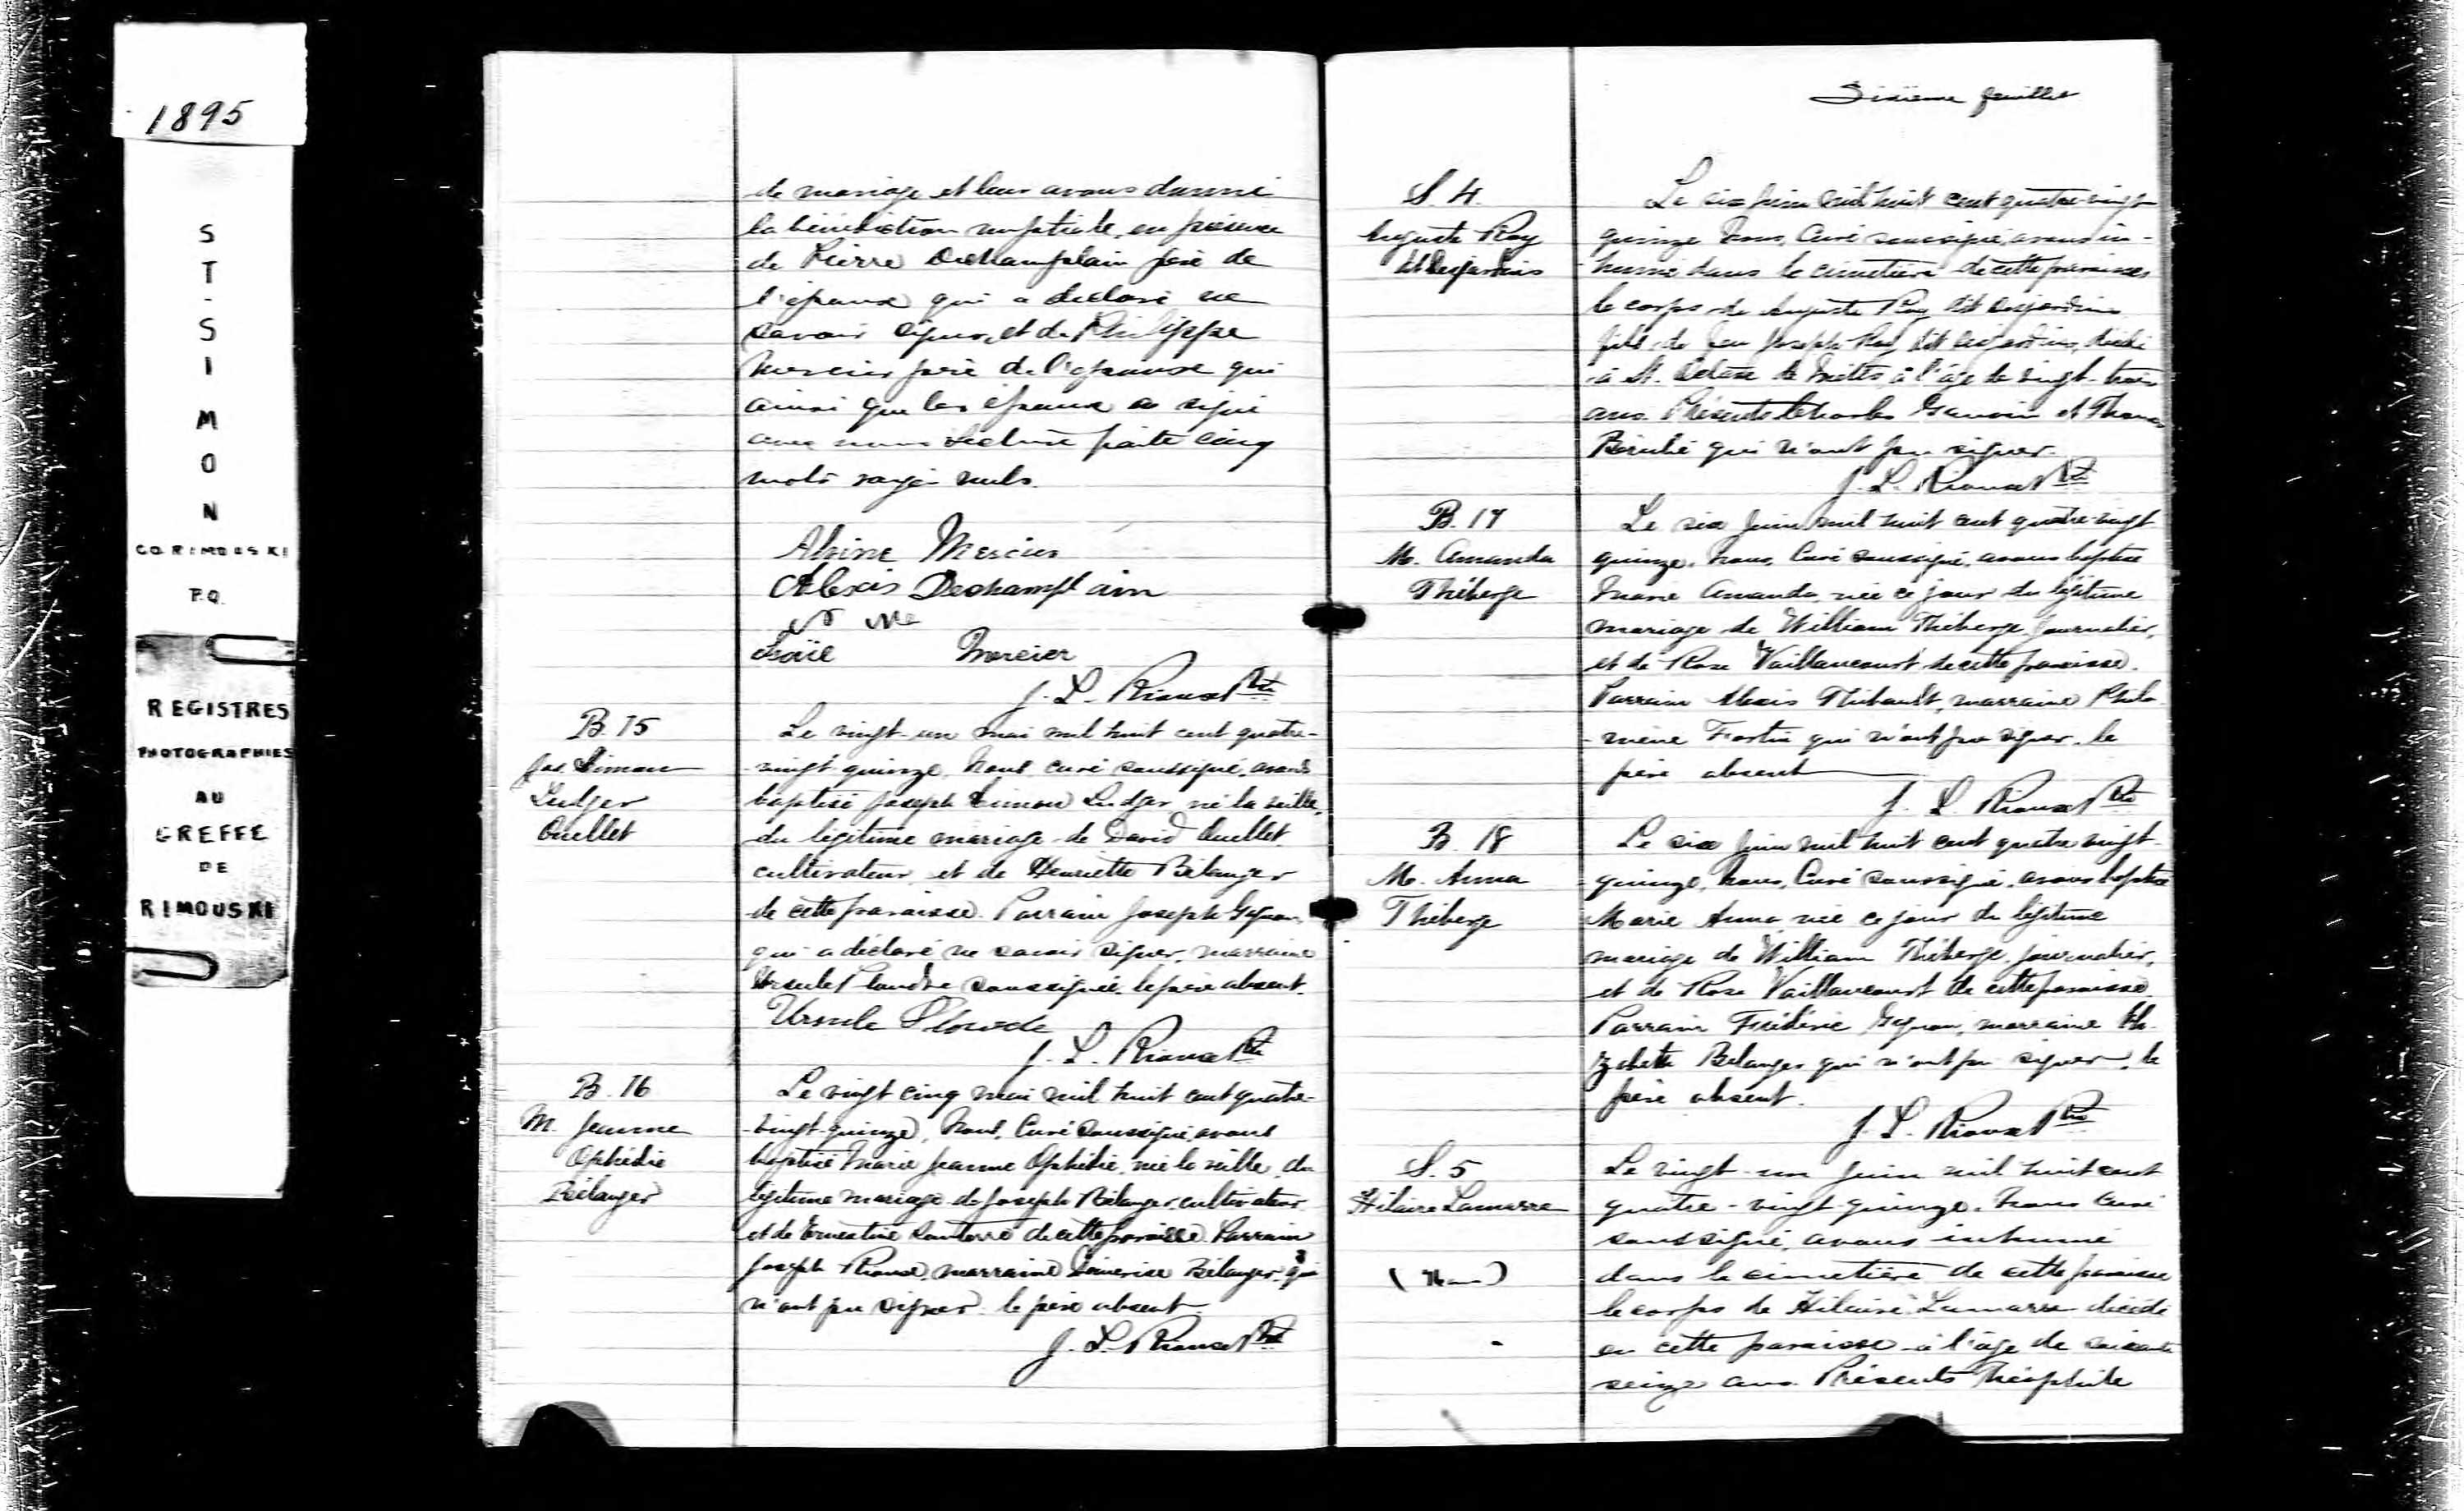 1895
ST-SIMON
CO. RIMOUSKI
P.Q.
REGISTRES
PHOTOGRAPHIES
AU
GREFFE
DE
RIMOUSKI
de mariage et leur avons donné
la bénédiction nuptiale, en présence
de Pierre Dechamplain père de
l'époux qui a déclaré ne
savoir signer, et de Philippe
Mercier père de l'épouse qui
ainsi que les époux a signé
avec nous Lecture faite cinq
mots rayés nuls.
Mercier
Alexis Dechamplain
Me
Mercier
J. L. Rioux Ptre
B. 15
Jos. Simon
Ludger
Ouellet
Le vingt-un mai mil huit cent quatre-
vingt-quinze, Nous, curé soussigné, avons
baptisé Joseph Simon Ludger, né la veille,
du légitime mariage de David Ouellet
cultivateur, et de Henriette Bélanger
de cette paroisse. Parrain Joseph Gagnon,
qui a déclaré ne savoir signer, marraine
Ursule Plourde soussignée. le père absent.
Ursule Plourde
J. L. Rioux Ptre
B. 16
M. Jeanne
Ophédie
Bélanger
Le vingt cinq mai mil huit cent quatre-
vingt-quinze, Nous, Curé soussigné avons
baptisé Marie Jeanne Ophédie, née la veille, du
légitime mariage de Joseph Bélanger, cultivateur
et de Ernestine Santerre de cette paroisse. Parrain
Joseph Rioux, marraine Démerise Bélanger, qui
n'ont pu signer. le père absent.
J. L. Rioux Ptre
Sixième feuillet
S. 4.
Auguste Roy
dit Desjardins
Le six juin mil huit cent quatre-vingt
quinze Nous, Curé soussigné, avons in-
humé dans le cimetière de cette paroisse
le corps de Auguste Roy dit Desjardins
fils de feu Joseph Roy dit Desjardins, décédé
à St. Octave de Métis, à l'âge de vingt-trois
ans. Présents Charles et Thomas
Bérubé qui n'ont pu signer.
J. L. Rioux Ptre
B. 17
M. Amanda
Théberge
Le six juin mil huit cent quatre-vingt
quinze, Nous, Curé soussigné, avons baptisé
Marie Amanda, née ce jour du légitime
mariage de William Théberge, journalier,
et de Rose Vaillancourt de cette paroisse.
Parrain Alexis Thibault, marraine Philo-
mène Fortin qui n'ont pu signer, le
père absent
J. L. Rioux Ptre
B. 18
M. Anna
Théberge
Le six juin mil huit cent quatre vingt-
quinze, Nous, Curé soussigné, avons baptisé
Marie Anna née ce jour du légitime
mariage de William Théberge, journalier,
et de Rose Vaillancourt de cette paroisse.
Parrain Frédéric Gagnon, marraine Eli-
zabeth Bélanger qui n'ont pu signer, le
père absent.
J. L. Rioux Ptre
S. 5
Hilaire Lamarre
(76 ans)
Le vingt-un juin mil huit cent
quatre-vingt-quinze, Nous Curé
soussigné, avons inhumé
dans le cimetière de cette paroisse
le corps de Hilaire Lamarre décédé
en cette paroisse à l'âge de soixante
seize ans. Présents Théophile